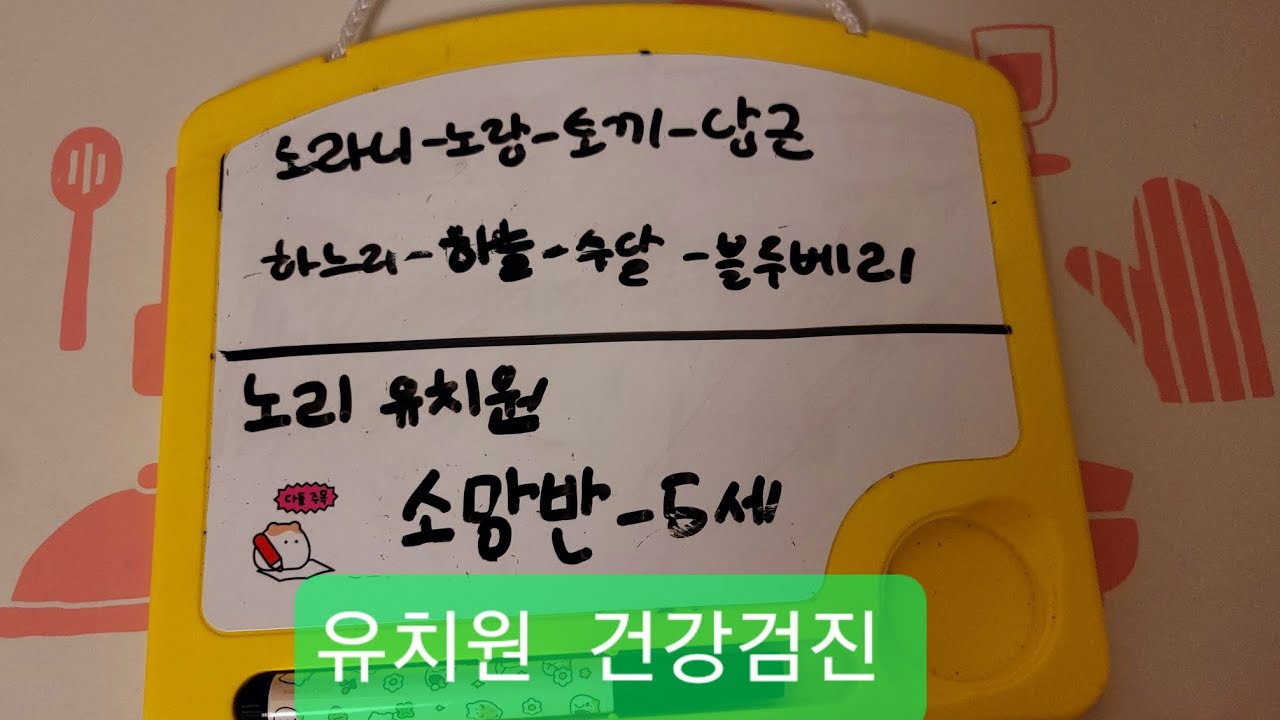 노라니-노랑-토끼-당근
하느리-하늘-수달-블루베리
노리 유치원
다들 주목
소망반-5세
유치원 건강검진